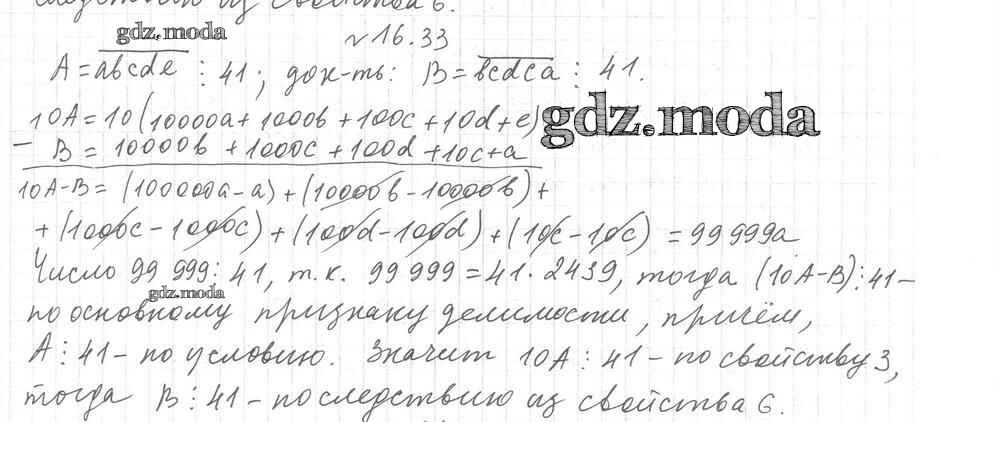 следствию из свойства 6.
gdz.moda
№16.33
A = abcde ⋮ 41; док-ть: B = bcdca ⋮ 41.
10A = 10(10000a + 1000b + 100c + 10d + e)
gdz.moda
− B = 10000b + 1000c + 100d + 10c + a
10A-B = (100000a - a) + (10000b - 10000b) +
+ (1000c - 1000c) + (100d - 100d) + (10c - 10c) = 99999a
Число 99 999 ⋮ 41, т.к. 99 999 = 41 · 2439, тогда (10A-B) ⋮ 41 -
gdz.moda
по основному признаку делимости, причём,
A ⋮ 41 - по условию. Значит 10A ⋮ 41 - по свойству 3,
тогда B ⋮ 41 - по следствию из свойства 6.